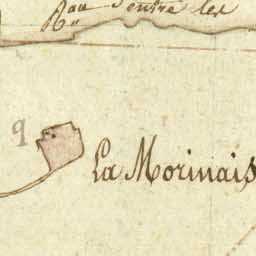 d'entre les
9
La Morinais